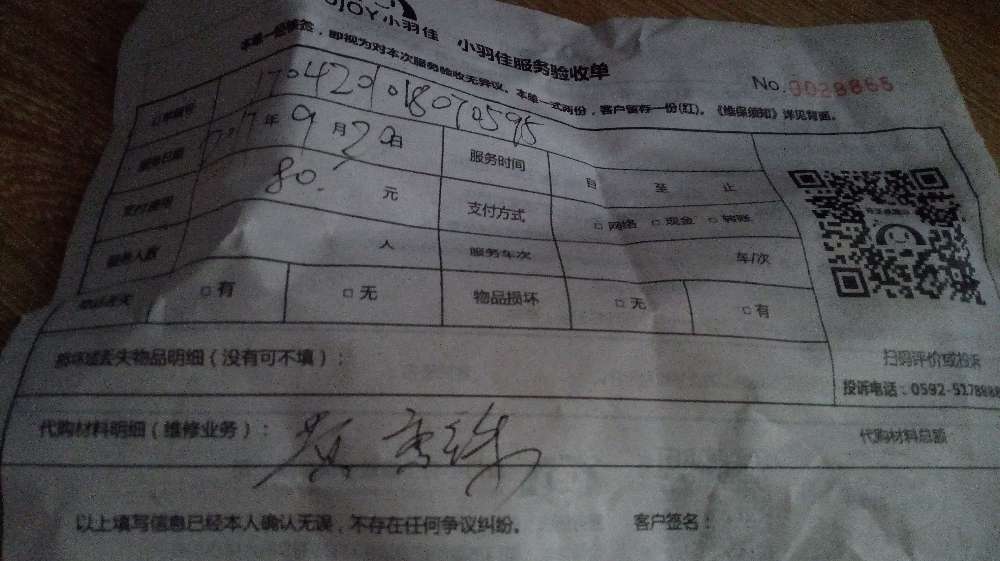 UJOY小羽佳 小羽佳服务验收单
本单一经核签，即视为对本次服务验收无异议。本单一式两份，客户留存一份(红)。《维保须知》详见背面。
No.0028866
订单编号 17042018070595
服务日期 2017年9月20日 服务时间 自 至 止
实付费用 80. 元 支付方式 □网络 □现金 □转账
服务人数 人 服务车次 车/次
物品丢失 □有 □无 物品损坏 □无 □有
损坏或丢失物品明细（没有可不填）：
扫码评价或投诉
投诉电话：0592-5178888
代购材料明细（维修业务）：
代购材料总额
以上填写信息已经本人确认无误，不存在任何争议纠纷。 客户签名：